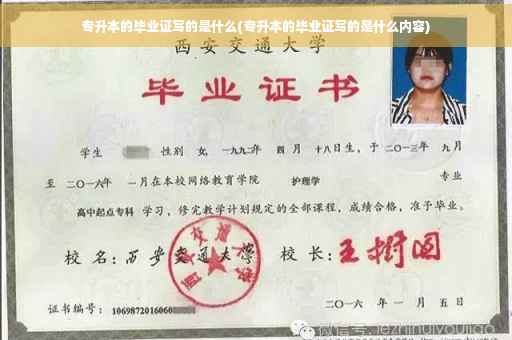 专升本的毕业证写的是什么(专升本的毕业证写的是什么内容)
西安交通大学
毕业证书
学生 性别 女, 一九九二年 四月 十八日生, 于二〇一三年 九月
至 二〇一六年 一月在本校网络教育学院 护理学 专业
高中起点专科 学习, 修完教学计划规定的全部课程, 成绩合格, 准予毕业。
校名: 西安交通大学 校长: 王树国
西安交通大学
证书编号: 1069872016060
二〇一六 年 一 月 五 日
微信号: jezhihuiyoujiao